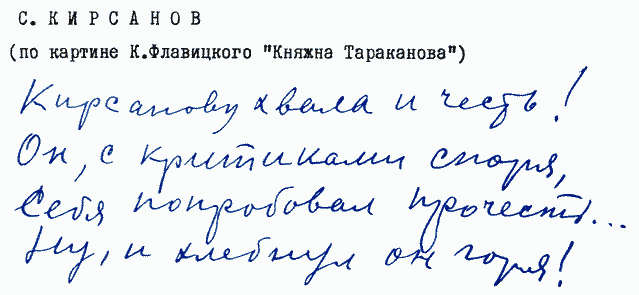 С. КИРСАНОВ
(по картине К.Флавицкого "Княжна Тараканова")
Кирсанову хвала и честь!
Он, с критиками споря,
Себя попробовал прочесть...
Ну, и хлебнул он горя!